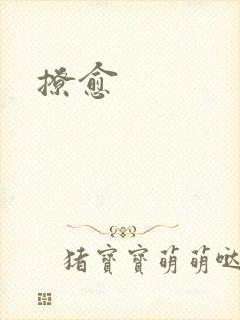 撩愈
猪寶寶萌萌哒